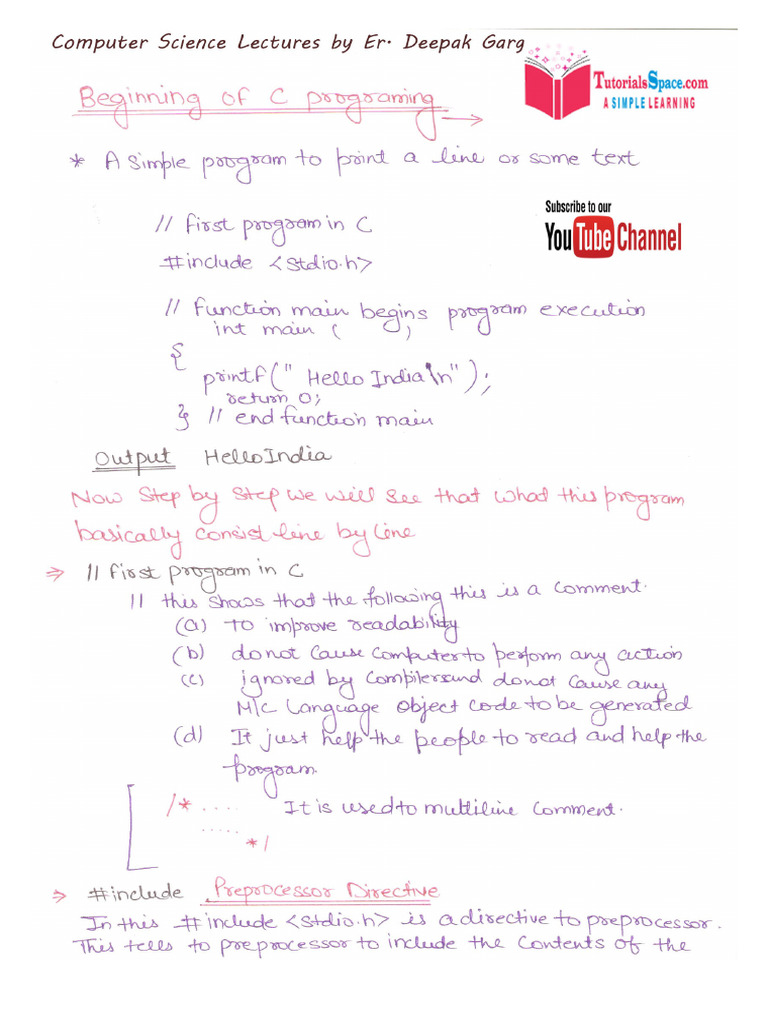 Computer Science Lectures by Er. Deepak Garg
TutorialsSpace.com
A SIMPLE LEARNING
Beginning of C programing
* A simple program to print a line or some text
Subscribe to our
YouTube Channel
// first program in C
#include <stdio.h>
// function main begins program execution
int main ( )
{
printf(" Hello India\n");
return 0;
} // end function main
Output Hello India
Now step by step we will see that what this program
basically consist line by line
⇒ // first program in C
// this shows that the following this is a comment.
(a) to improve readability
(b) donot cause computer to perform any action
(c) ignored by compilers and donot cause any
M/c Language object code to be generated
(d) It just help the people to read and help the
program.
/* .... It is used to multiline comment.
.....
*/
⇒ #include Preprocessor Directive
In this #include <stdio.h> is a directive to preprocessor.
This tells to preprocessor to include the contents of the